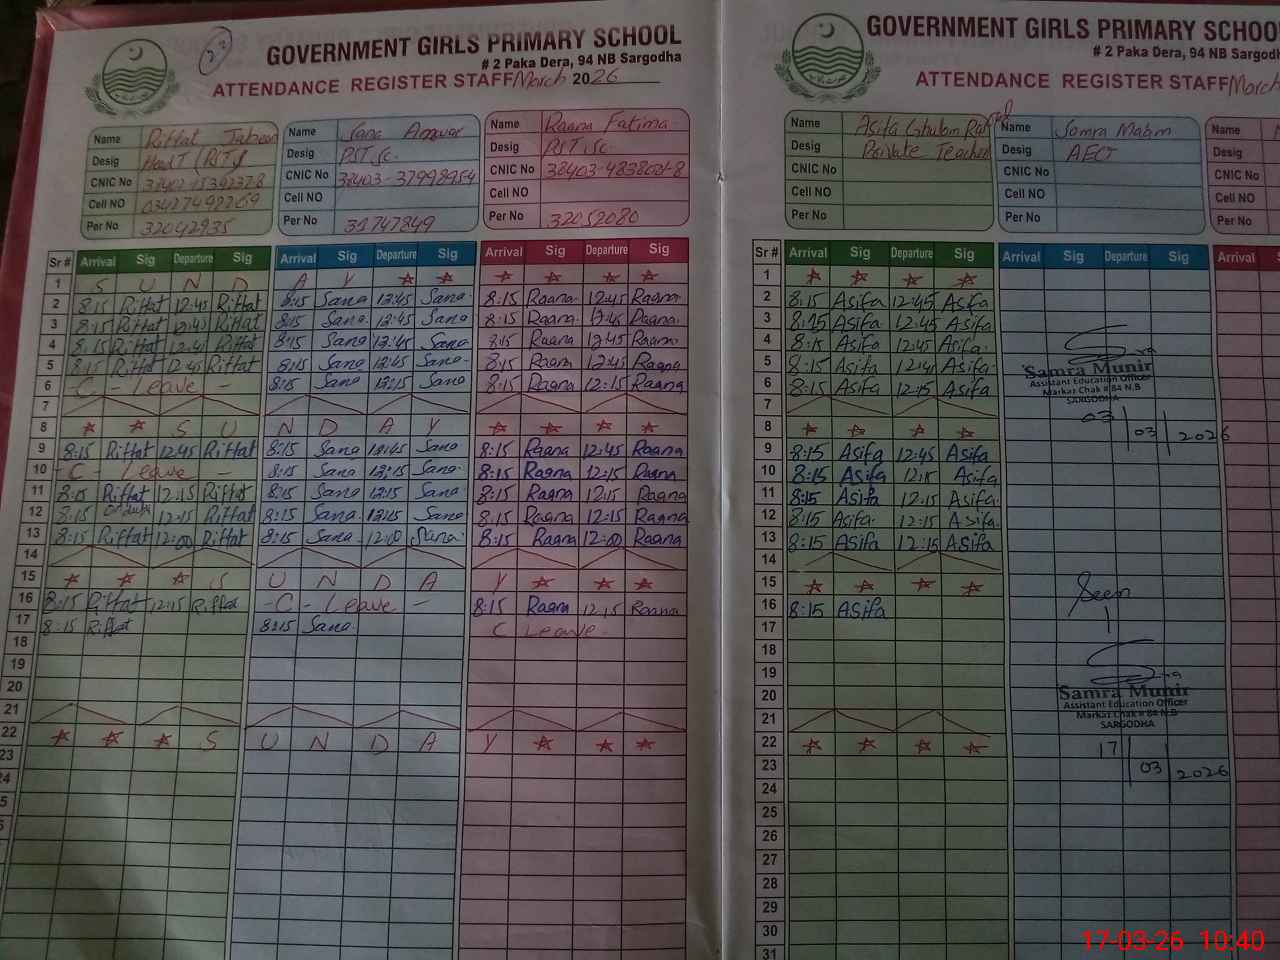 22
GOVERNMENT GIRLS PRIMARY SCHOOL
# 2 Paka Dera, 94 NB Sargodha
ATTENDANCE REGISTER STAFF March 2026
Name Riffat
Desig
CNIC No
Cell NO
Per No 32042935
Name Sana Anwar
Desig PST Sc.
CNIC No 38403-37998954
Cell NO
Per No 31747849
Name Raana Fatima
Desig PST Sc.
CNIC No
Cell NO
Per No 32052080
Sr # Arrival Sig Departure Sig Arrival Sig Departure Sig Arrival Sig Departure Sig
1 S U N D A Y
2 8:15 Riffat 12:45 Riffat 8:15 Sana 12:45 Sana 8:15 Raana 12:45 Raana
3 8:15 Riffat 12:45 Riffat 8:15 Sana 12:45 Sana 8:15 Raana 12:45 Raana
4 8:15 Riffat 12:45 Riffat 8:15 Sana 12:45 Sana 8:15 Raana 12:45 Raana
5 8:15 Riffat 12:45 Riffat 8:15 Sana 12:45 Sana 8:15 Raana 12:45 Raana
6 - C - Leave - 8:15 Sana 12:15 Sana 8:15 Raana 12:15 Raana
7
8 S U N D A Y
9 8:15 Riffat 12:45 Riffat 8:15 Sana 12:45 Sana 8:15 Raana 12:45 Raana
10 - C - Leave - 8:15 Sana 12:15 Sana 8:15 Raana 12:15 Raana
11 8:15 Riffat 12:15 Riffat 8:15 Sana 12:15 Sana 8:15 Raana 12:15 Raana
12 8:15 12:15 Riffat 8:15 Sana 12:15 Sana 8:15 Raana 12:15 Raana
13 8:15 Riffat 12:00 Riffat 8:15 Sana 12:00 Sana 8:15 Raana 12:00 Raana
14
15 S U N D A Y
16 8:15 Riffat 12:15 Riffat - C - Leave - 8:15 Raana 12:15 Raana
17 8:15 Riffat 8:15 Sana C Leave
18
19
20
21
22 S U N D A Y
23
24
GOVERNMENT GIRLS PRIMARY SCHOOL
# 2 Paka Dera, 94 NB Sargodha
ATTENDANCE REGISTER STAFF March
Name Asifa Ghulam
Desig Private Teacher
CNIC No
Cell NO
Per No
Name
Desig AEO
CNIC No
Cell NO
Per No
Name
Desig
CNIC No
Cell NO
Per No
Sr # Arrival Sig Departure Sig Arrival Sig Departure Sig Arrival
1
2 8:15 Asifa 12:45 Asifa
3 8:15 Asifa 12:45 Asifa
4 8:15 Asifa 12:45 Asifa
5 8:15 Asifa 12:45 Asifa
6 8:15 Asifa 12:15 Asifa
7
8
9 8:15 Asifa 12:45 Asifa
10 8:15 Asifa 12:15 Asifa
11 8:15 Asifa 12:15 Asifa
12 8:15 Asifa 12:15 Asifa
13 8:15 Asifa 12:15 Asifa
14
15
16 8:15 Asifa
17
18
19
20
21
22
23
24
25
26
27
28
29
30
31
Samra Munir
Assistant Education Officer
Markaz Chak # 84 N.B
SARGODHA
03 03 2026
Seen
Samra Munir
Assistant Education Officer
Markaz Chak # 84 N.B
SARGODHA
17 03 2026
17-03-26 10:40